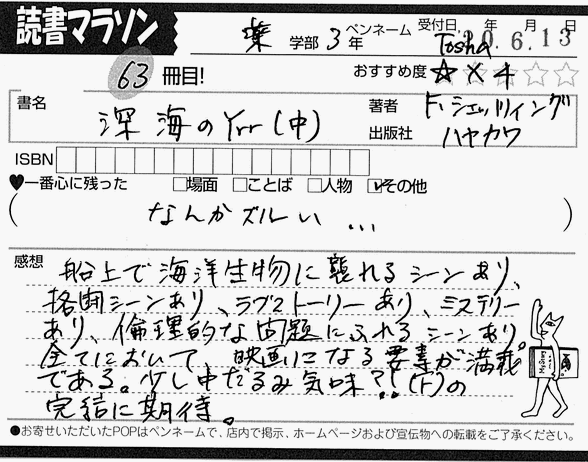 読書マラソン
薬 学部 3 年 ペンネーム Tosha 受付日 年 月 日 10.6.13
63 冊目! おすすめ度 ★×4
書名 深海のYrr(中) 著者 F.シェッツィング
出版社 ハヤカワ
ISBN
♥一番心に残った □場面 □ことば □人物 ☑その他
( なんかズルい ... )
感想 船上で海洋生物に襲れるシーンあり、
格闘シーンあり、ラブストーリーあり、ミステリー
あり、倫理的な問題にふれるシーンあり。
全てにおいて、映画になる要素が満載
である。少し中だるみ気味?!(下)の
完結に期待。
●お寄せいただいたPOPはペンネームで、店内で掲示、ホームページおよび宣伝物への転載をご了承ください。